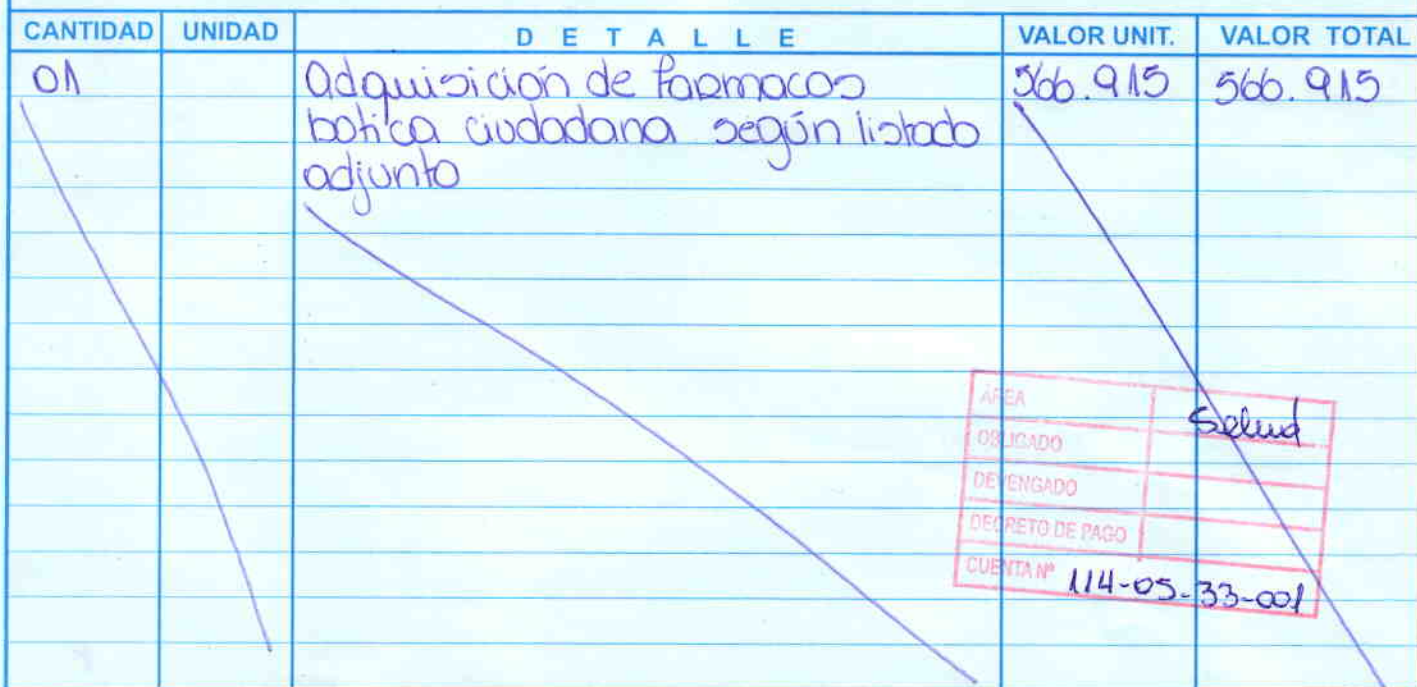 CANTIDAD UNIDAD DETALLE VALOR UNIT. VALOR TOTAL
01 adquisición de farmacos 566.915 566.915
botica ciudadana según listado
adjunto
ÁREA Salud
OBLIGADO
DEVENGADO
DECRETO DE PAGO
CUENTA Nº 114-05-33-001